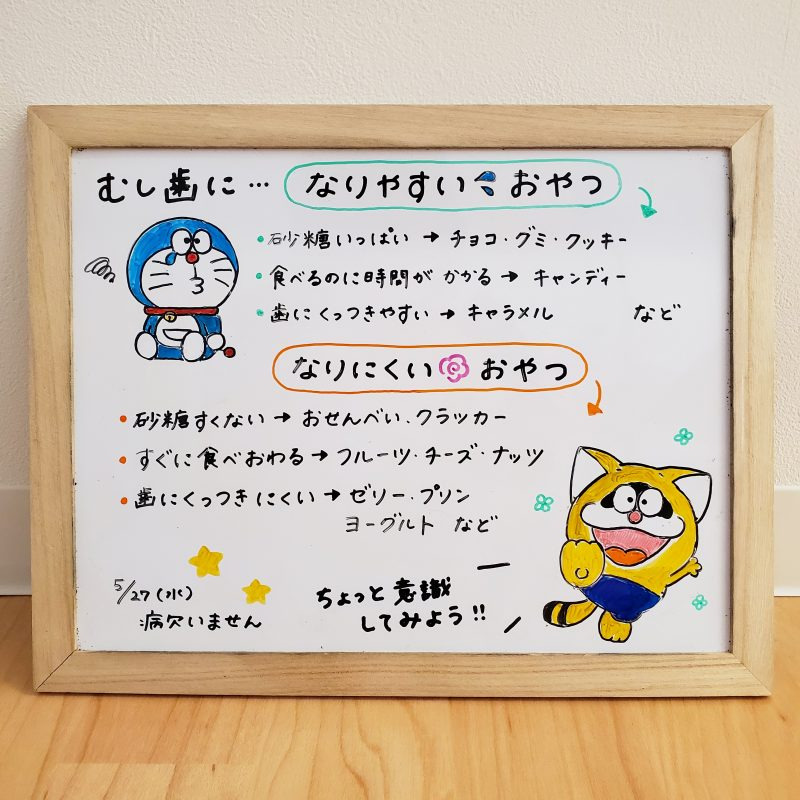 むし歯に… なりやすいおやつ
・砂糖いっぱい → チョコ・グミ・クッキー
・食べるのに時間が かかる → キャンディー
・歯にくっつきやすい → キャラメル など
なりにくいおやつ
・砂糖すくない → おせんべい、クラッカー
・すぐに食べおわる → フルーツ・チーズ・ナッツ
・歯にくっつきにくい → ゼリー・プリン
ヨーグルト など
5/27(水)
病欠いません
ちょっと意識
してみよう!!